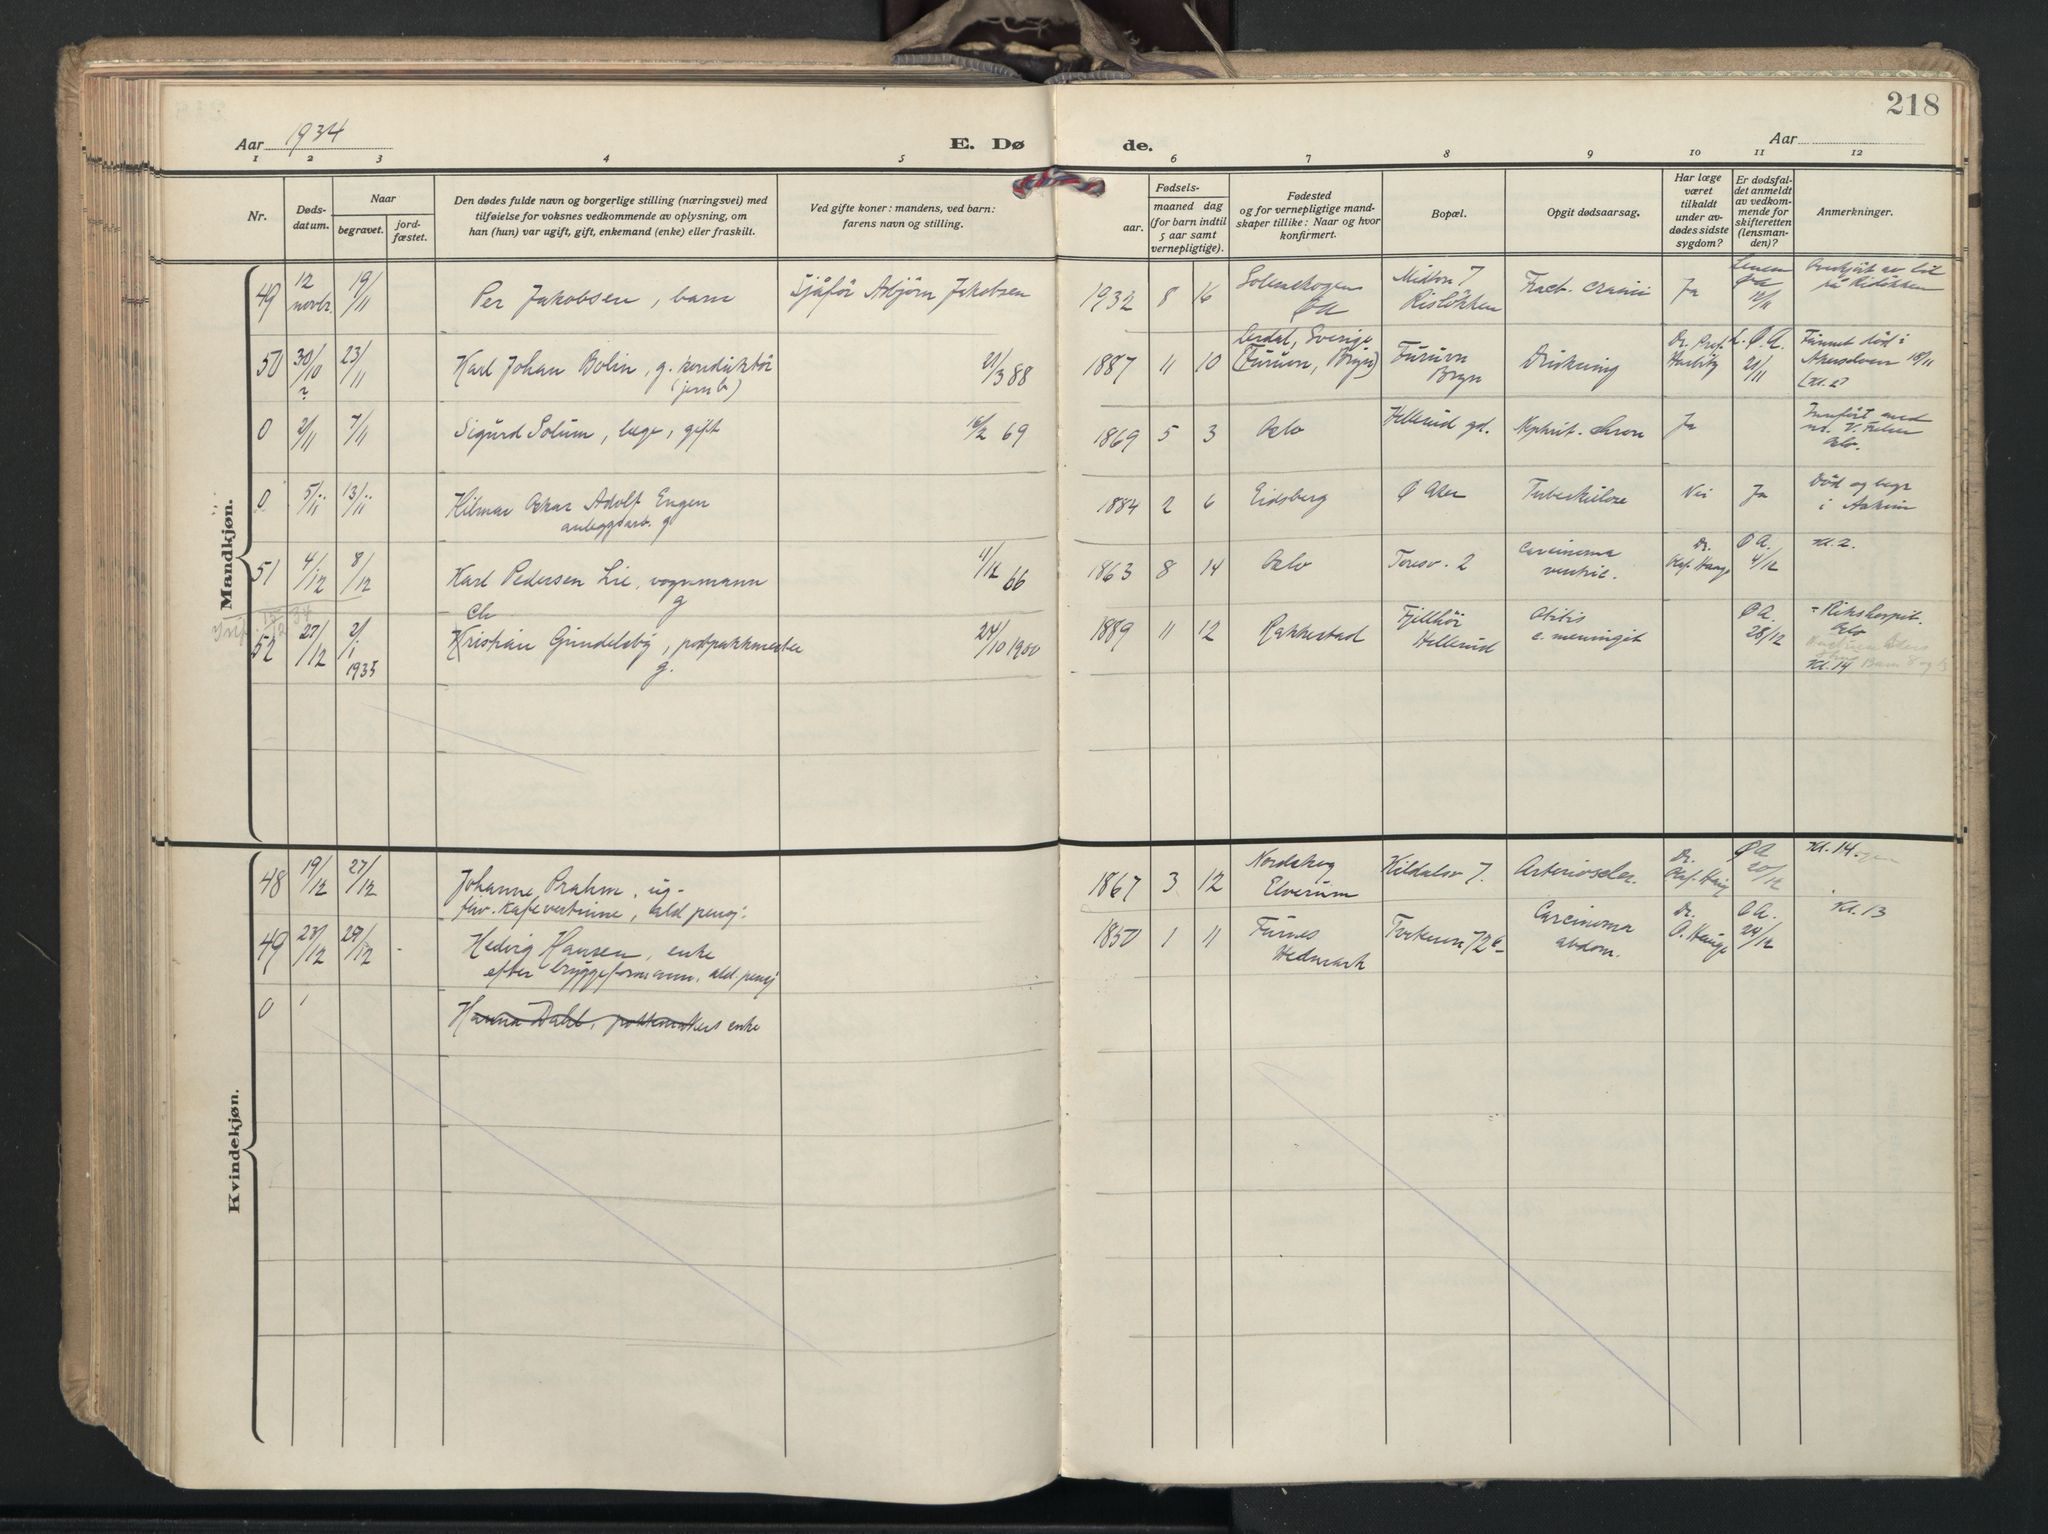 218
Aar 1934
E. Dø
de.
Aar
1 2 3 4 5 6 7 8 9 10 11 12
Nr.
Døds-
datum.
Naar
begravet.
jord-
fæstet.
Den dødes fulde navn og borgerlige stilling (næringsvei) med
tilføielse for voksnes vedkommende av oplysning, om
han (hun) var ugift, gift, enkemand (enke) eller fraskilt.
Ved gifte koner: mandens, ved barn:
farens navn og stilling.
Fødsels-
aar.
maaned dag
(for barn indtil
5 aar samt
vernepligtige).
Fødested
og for vernepligtige mand-
skaper tillike: Naar og hvor
konfirmert.
Bopæl.
Opgit dødsaarsag.
Har læge
været
tilkaldt
under av-
dødes sidste
sygdom?
Er dødsfal-
det anmeldt
av vedkom-
mende for
skifteretten
(lensman-
den)?
Anmerkninger.
Mandkjøn.
49 12 novbr. 19/11 Per Jakobsen, barn Sjåfør Asbjørn Jakobsen 1932 8 16 Solenskogen ØA Midtov 7 Risløkken Fract. cranii Ja 12/11
50 30/10 ? 23/11 Karl Johan Bolin, g. konduktör (jernb) 21/3 88 1887 11 10 Lerdal, Sverige (Furuvn, Bryn) Furuvn Bryn Drukning Dr. Prof. L. Ø. A. 21/11 Funnet död i Akerselven 18/11 Kl. 2
0 2/11 7/11 Sigurd Solum, læge, gift 16/2 69 1869 5 3 Oslo Hellerud gd. Nephrit. chron Ja Oslo.
0 5/11 13/11 Hilmar Oskar Adolf Engen anleggsarb. g 1884 2 6 Eidsberg Ø Aker Tuberkulose Nei Ja Død og begr i Askim
51 4/12 8/12 Karl Pedersen Lie, vognmann g 11/12 66 1863 8 14 Oslo Toresv. 2 Carcinoma ventric. Dr. Olaf. Hauge Ø A. 4/12 Kl. 2.
Ch
52 27/12 2/1 1935 Kristian Grindelsby, postpakkmester g. 24/10 1900 1889 11 12 Rakkestad Fjellhör Hellerud Otitis c. meningit Ø A. 28/12 Rikshospit. Oslo Kl. 14
Kvindekjøn.
48 19/12 27/12 Johanne Prahm, ug. fhv. kafevertinne, ald pensj. 1867 3 12 Nordskog Elverum Kildalsv 7. Arterioscler. Dr. Olaf. Haug Ø A 20/12 Kl. 14.
49 23/12 29/12 Hedvig Hansen, enke efter bryggeformann, ald. pensj 1850 1 11 Furnes Hedmark Carcinoma abdom. Dr. O. Hauge Ø A. 24/12 Kl. 13
0 Hanna Dahl, pottemakers enke